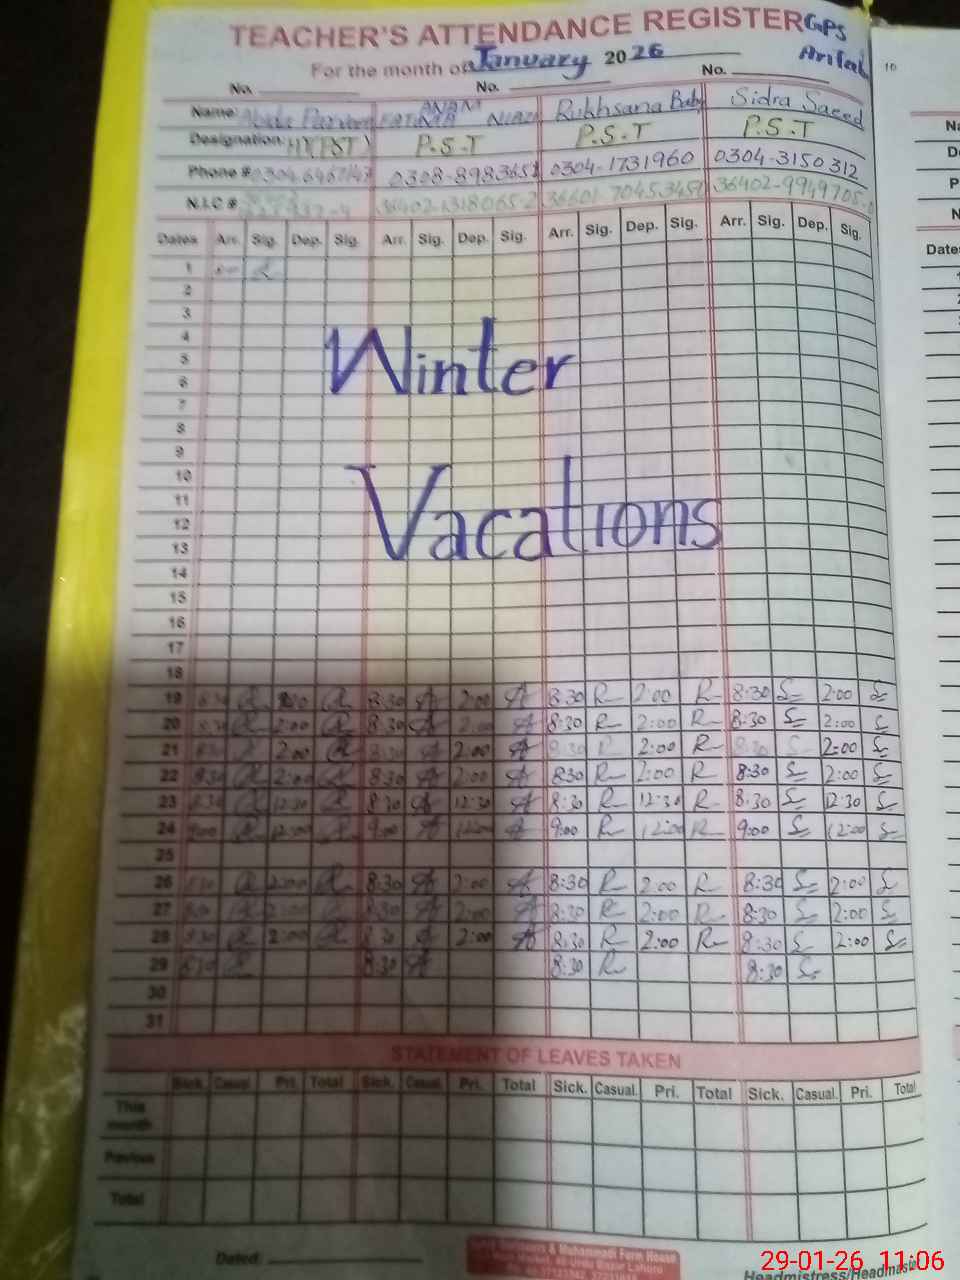 TEACHER'S ATTENDANCE REGISTER GPS
For the month of January 2026
No. No. No. 10
Name: Abida Parveen ANAM FATIMA NIAZI Rukhsana Sidra Saeed
Designation: P.S.T P.S.T P.S.T
Phone # 0308-898365 0304-1731960 0304-3150312
N.I.C #
Dates Arr. Sig. Dep. Sig. Arr. Sig. Dep. Sig. Arr. Sig. Dep. Sig. Arr. Sig. Dep. Sig.
1
2
3
4
5
6
7
8
9
10
11
12
13
14
15
16
17
18
Winter
Vacations
19 8:30 2:00 8:30 R 2:00 R 8:30 S 2:00 S
20 8:30 2:00 8:30 2:00 8:30 R 2:00 R 8:30 S 2:00 S
21 2:00 8:30 2:00 8:30 R 2:00 R 8:30 S 2:00 S
22 8:30 2:00 8:30 2:00 8:30 R 2:00 R 8:30 S 2:00 S
23 8:30 12:30 8:30 12:30 8:30 R 12:30 R 8:30 S 12:30 S
24 9:00 12:00 9:00 12:00 9:00 R 12:00 R 9:00 S 12:00 S
25
26 8:30 2:00 8:30 2:00 8:30 R 2:00 R 8:30 S 2:00 S
27 2:00 8:30 2:00 8:30 R 2:00 R 8:30 S 2:00 S
28 8:30 2:00 8:30 2:00 8:30 R 2:00 R 8:30 S 2:00 S
29 8:30 8:30 8:30 R 8:30 S
30
31
STATEMENT OF LEAVES TAKEN
Sick. Casual. Pri. Total Sick. Casual. Pri. Total Sick. Casual. Pri. Total Sick. Casual. Pri. Total
This month
Previous
Total
Dated:
& Muhammadi Form House
Urdu Bazar Lahore
Headmistress/Headmaster
29-01-26 11:06